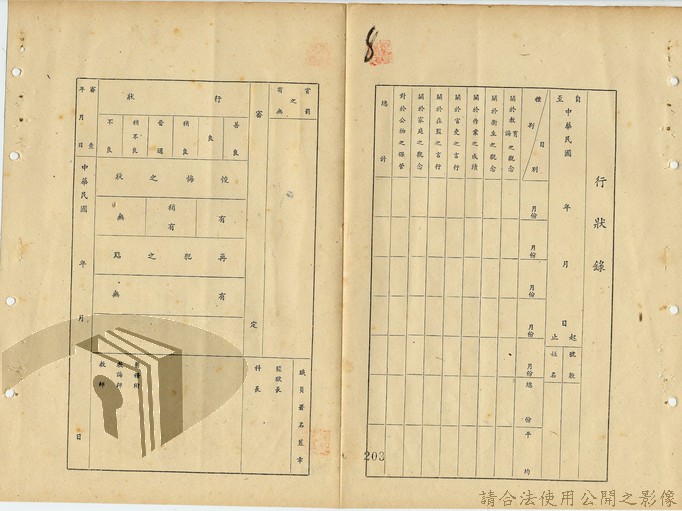 8
行狀錄
自 中華民國 年 月 日 起
至 止
號數
姓名
種別 月別
關於教育教誨之觀念
關於衛生之觀念
關於作業之成績
關於官吏之言行
關於在監之言行
關於家庭之觀念
對於公物之保管
總計
月份
月份
月份
月份
月份
總份
平均
203
賞罰之有無
審定
行狀
善良
稍良
普通
稍不良
不良
悛悔之狀
有
稍有
無
再犯之點
有
無
審查
年月日
中華民國 年 月 日
職員署名蓋章
典獄長
科長
教誨師
教師
請合法使用公開之影像